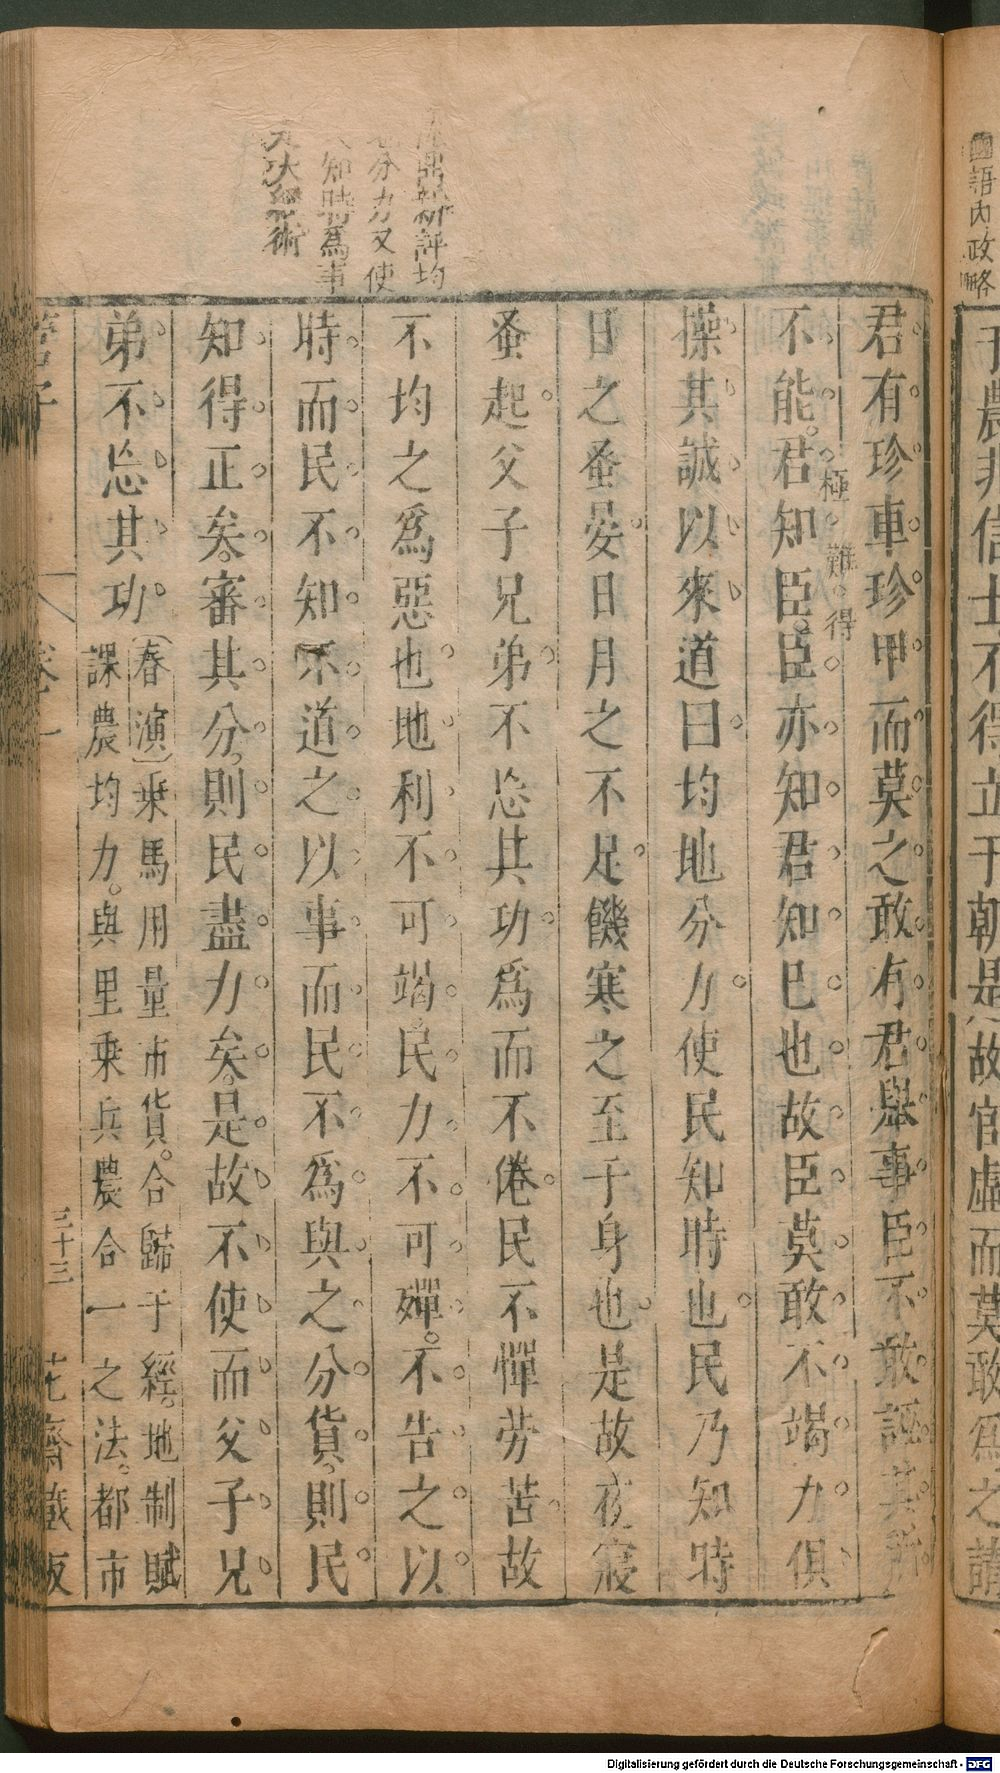 國語內政略
于農非信士不得立于朝是故官虛而莫敢爲之請
君有珍車珍甲而莫之敢有君舉事臣不敢誣其所
不能君知臣臣亦知君知巳也故臣莫敢不竭力俱
極難得
操其誠以來道曰均地分力使民知時也民乃知時
日之蚤晏日月之不足饑寒之至于身也是故夜寢
蚤起父子兄弟不忘其功爲而不倦民不憚劳苦故
評均
分力又使
知時爲事
術
不均之爲惡也地利不可竭民力不可殫不告之以
時而民不知不道之以事而民不爲與之分貨則民
知得正矣審其分則民盡力矣是故不使而父子兄
弟不忘其功
(春演)乗馬用量市貨合歸于經地制賦
課農均力與里乗兵農合一之法都市
管子
卷一
三十三
花齋藏板
Digitalisierung gefördert durch die Deutsche Forschungsgemeinschaft - DFG